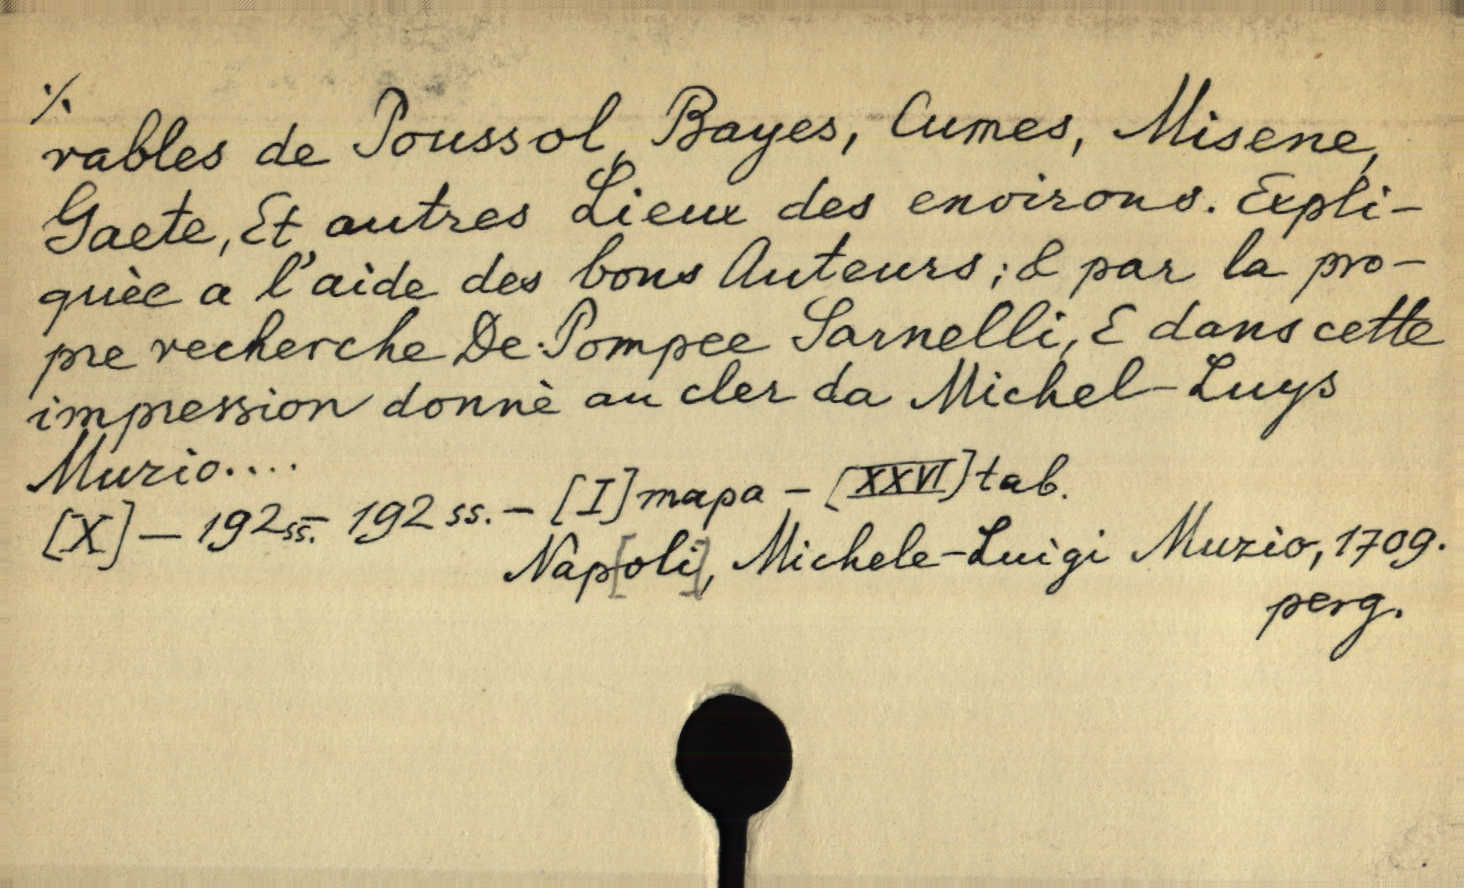 ./.
rables de Poussol, Bayes, Cumes, Misene,
Gaete, Et autres Lieux des environs. Expli-
quèe a l'aide des bons Auteurs; & par la pro-
pre recherche De Pompee Sarnelli, E dans cette
impression donnè au cler da Michel-Luys
Muzio....
[X] - 192 ss. - 192 ss. - [I] mapa - [XXVI] tab.
Nap[oli], Michele-Luigi Muzio, 1709.
perg.